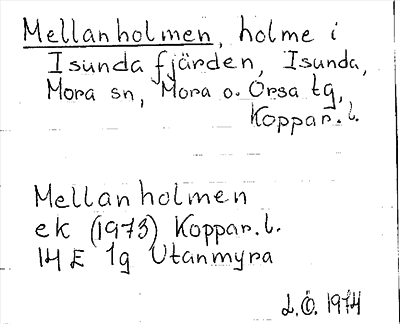 Mellanholmen, holme i
Isundafjärden, Isunda,
Mora sn, Mora o. Orsa tg,
Koppar.l.
Mellanholmen
ek (1973) Koppar.l.
14E 1g Utanmyra
L.Ö. 1974